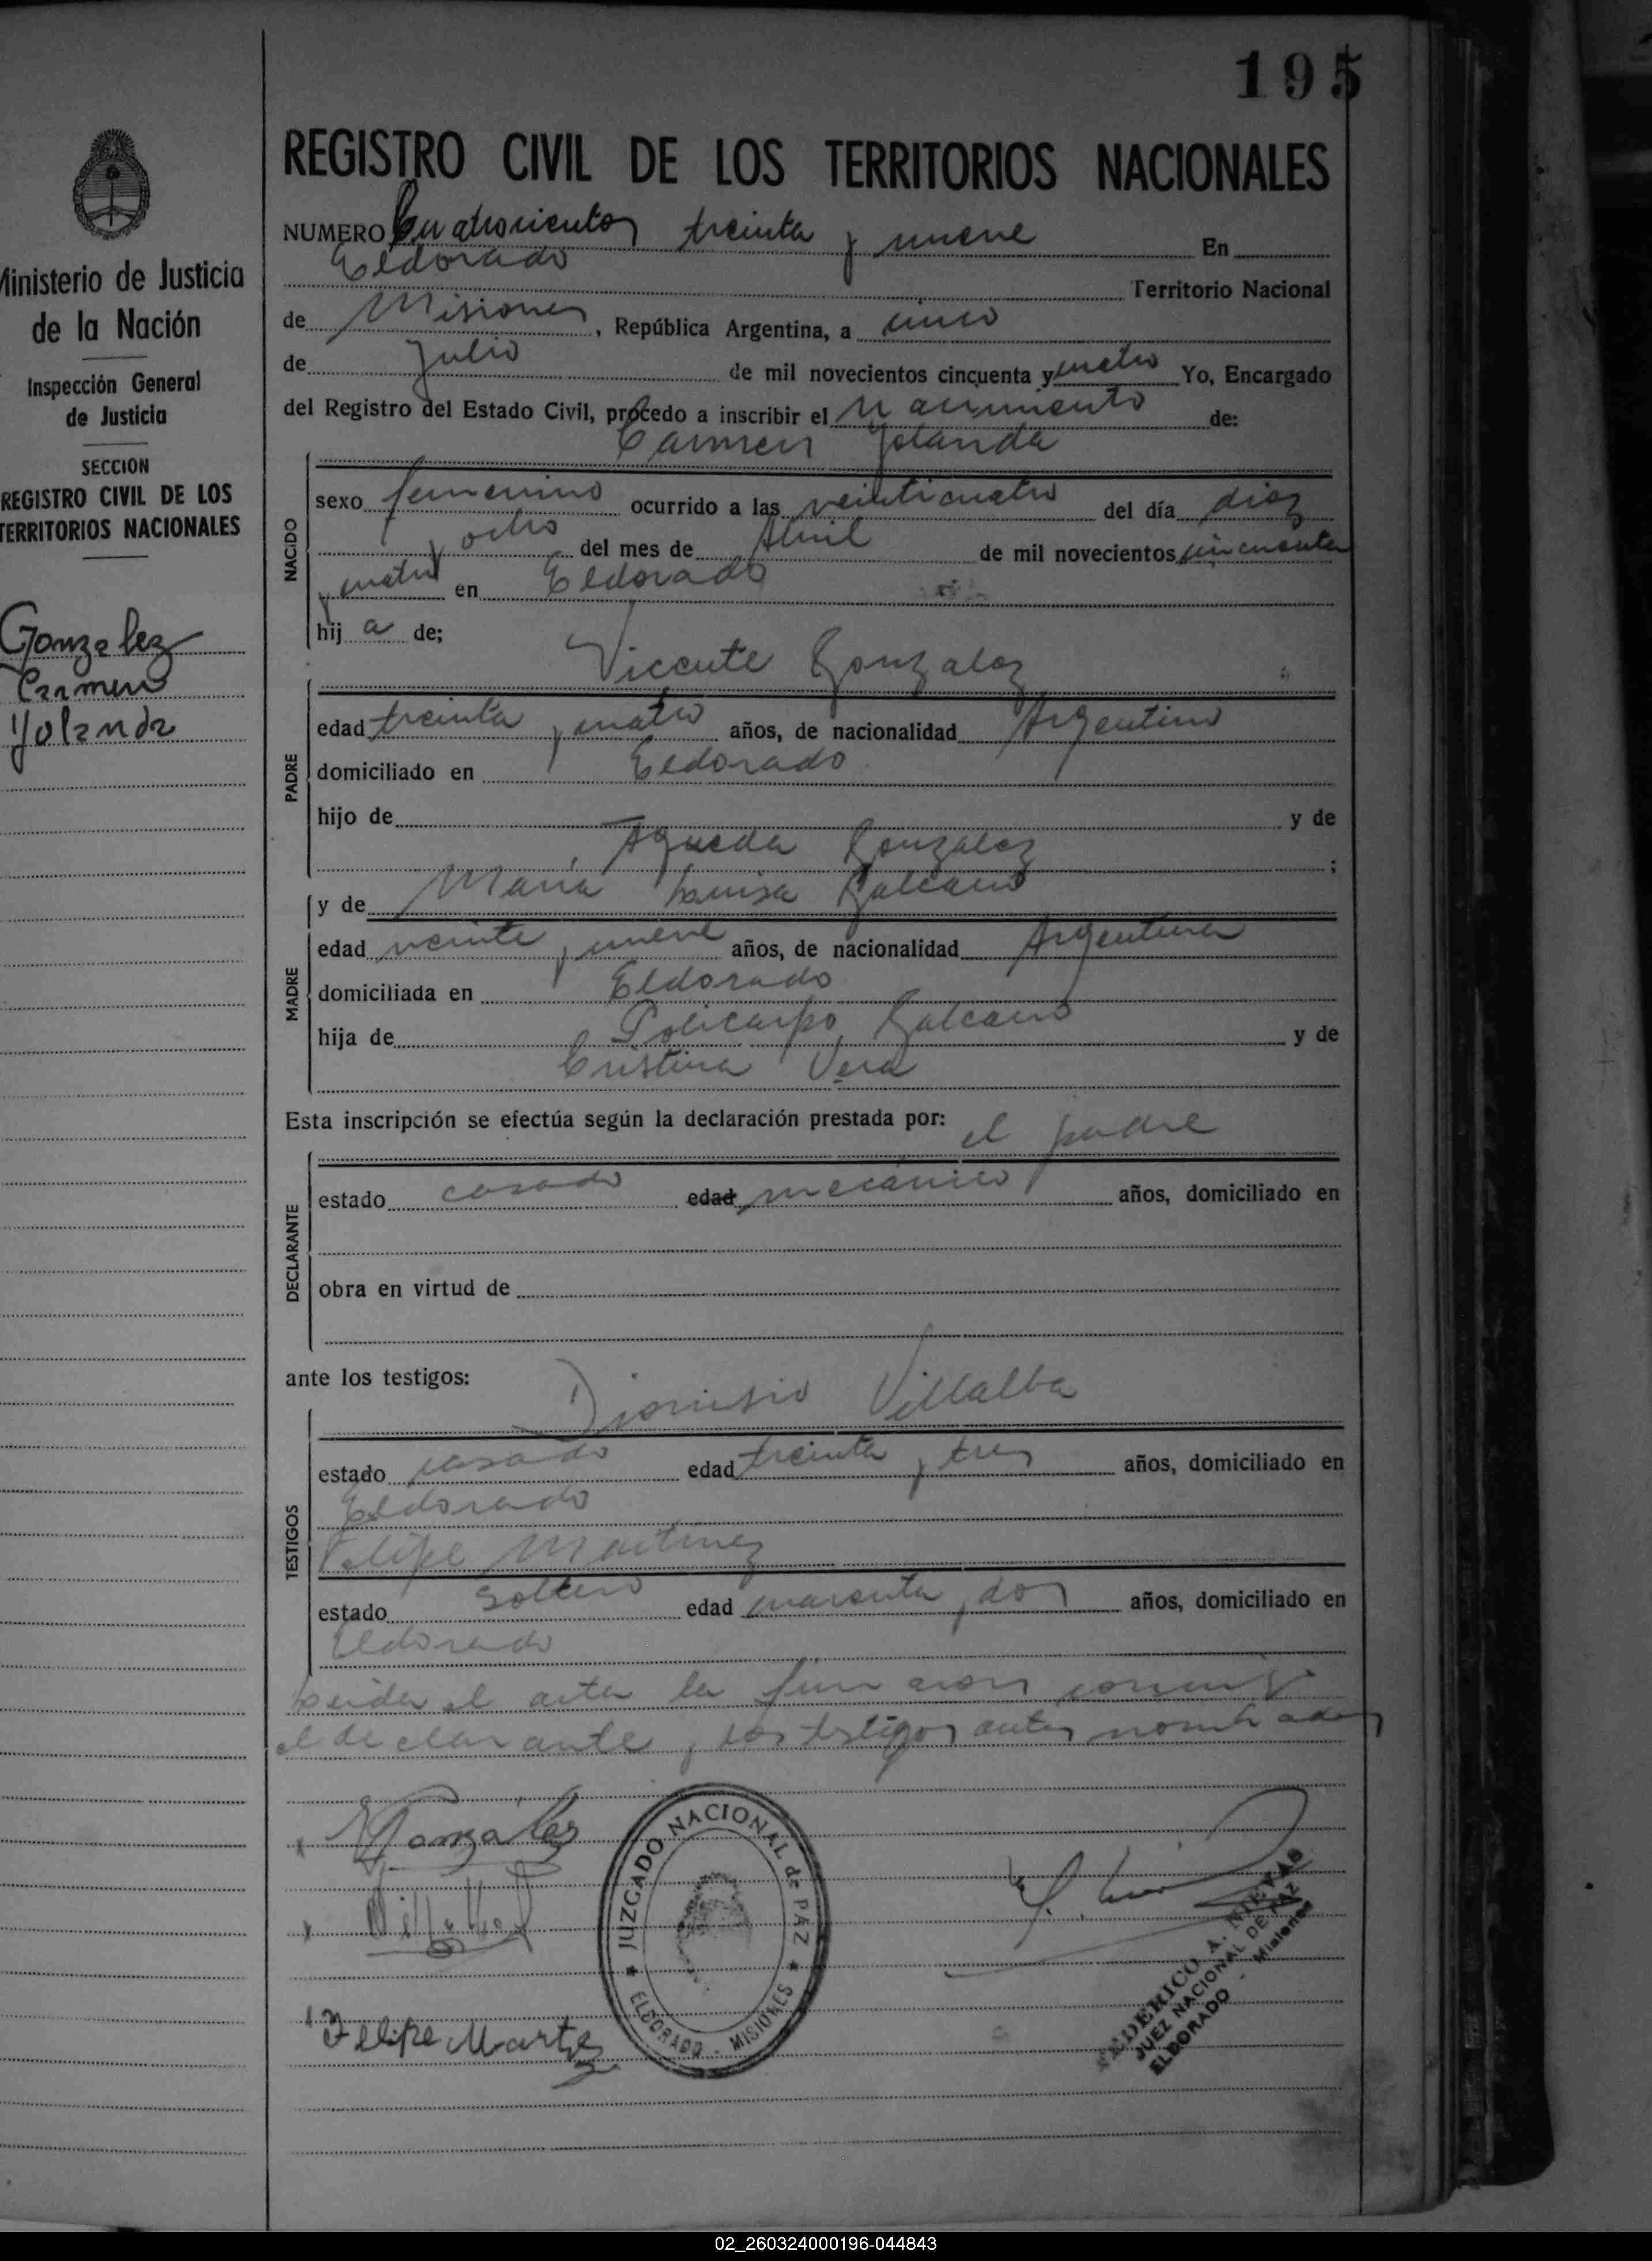 195
REGISTRO CIVIL DE LOS TERRITORIOS NACIONALES
Ministerio de Justicia
de la Nación
Inspección General
de Justicia
SECCION
REGISTRO CIVIL DE LOS
TERRITORIOS NACIONALES
Gonzalez
Carmen
Yolanda
NUMERO Cuatrocientos treinta y nueve En
Eldorado
Territorio Nacional
de Misiones, República Argentina, a cinco
de Julio de mil novecientos cincuenta y cuatro Yo, Encargado
del Registro del Estado Civil, procedo a inscribir el Nacimiento de:
Carmen Yolanda
NACIDO
sexo femenino ocurrido a las veinticuatro del día diez
y ocho del mes de Abril de mil novecientos cincuenta
y cuatro en Eldorado
hija de;
Vicente Gonzalez
PADRE
edad treinta y cuatro años, de nacionalidad Argentino
domiciliado en Eldorado
hijo de y de
Agueda Gonzalez ;
y de Maria Luisa Galeano
MADRE
edad veinte y nueve años, de nacionalidad Argentina
domiciliada en Eldorado
hija de Policarpo Galeano y de
Cristina Vera
Esta inscripción se efectúa según la declaración prestada por: el padre
DECLARANTE
estado casado edad mecánico años, domiciliado en
obra en virtud de
ante los testigos:
Dionisio Villalba
TESTIGOS
estado casado edad treinta y tres años, domiciliado en
Eldorado
Felipe Martinez
estado soltero edad cuarenta y dos años, domiciliado en
Eldorado
Leida el acta la firmaron conmigo
el declarante y los testigos antes nombrados
Gonzalez
Villalba
Felipe Martinez
JUZGADO NACIONAL de PAZ
ELDORADO - MISIONES
FEDERICO A. NIEVAS
JUEZ NACIONAL DE PAZ
ELDORADO - Misiones
02_260324000196-044843